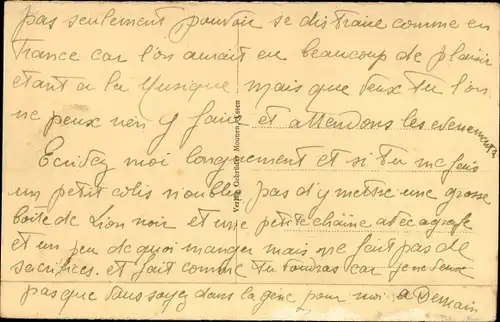 pas seulement pouvoir se distraire comme en
france car l'on aurait eu beaucoup de plaisir
etant a la Musique mais que veux tu l'on
ne peux rien y faire et attendons les evenements
Ecrivez moi longuement et si tu me fais
un petit colis n'oublie pas d'y mettre une grosse
boite de Lion noir et une petite chaine avec agrafe
et un peu de quoi manger mais ne fait pas de
sacrifices. et fait comme tu voudras car je ne veux
pas que vous soyez dans la gène pour moi a Demain
Verlag Gebrüder Mouten, Essen